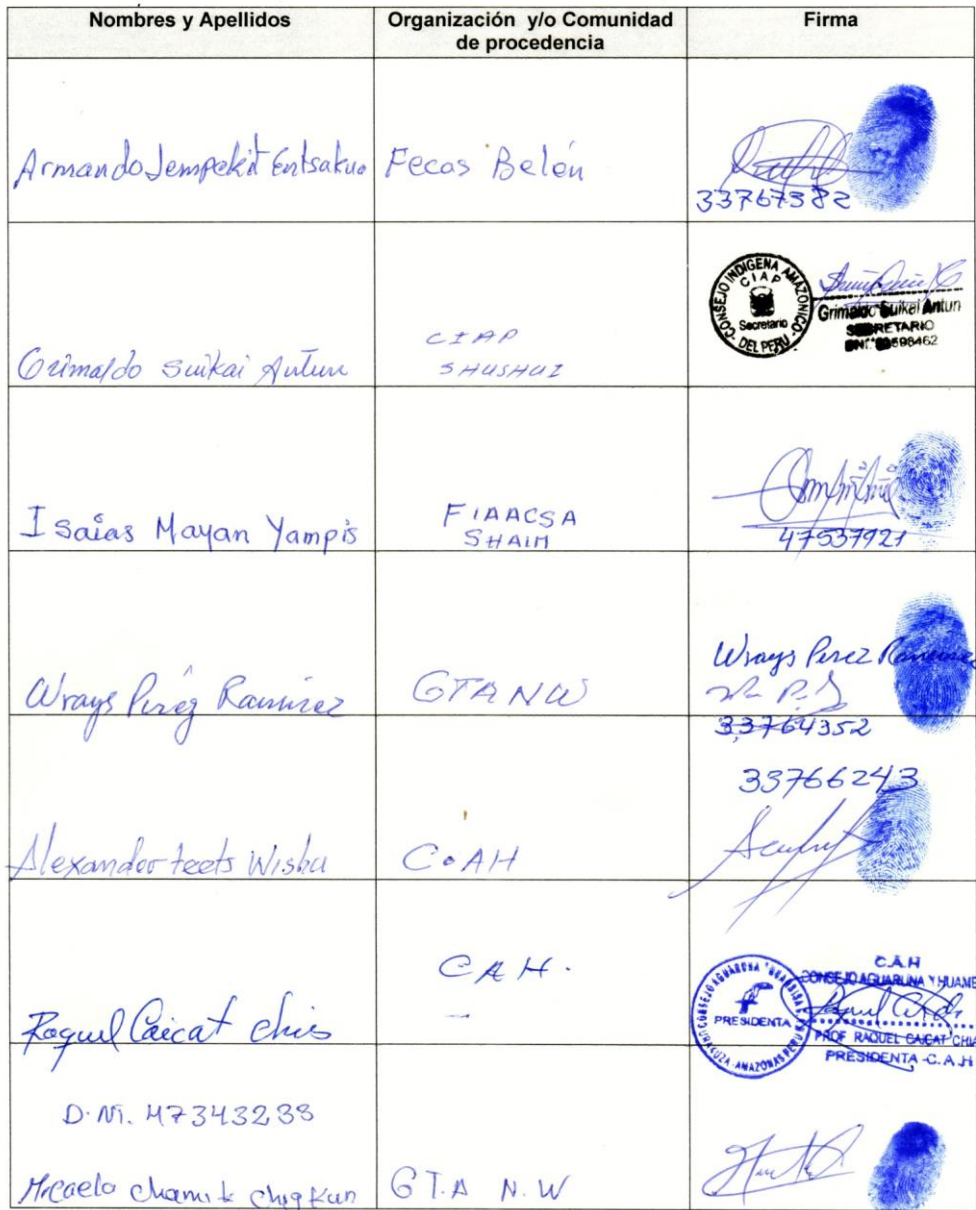 Nombres y Apellidos
Organización y/o Comunidad
de procedencia
Firma
Armando Jempekit Entsakua
Fecas Belén
33767382
Grimaldo Suikai Antun
CIAP
SHUSHUI
CONSEJO INDIGENA AMAZONICO
CIAP
Secretario
DEL PERU
Grimaldo Suikai Antun
SECRETARIO
598462
Isaías Mayan Yampis
FIAACSA
SHAIM
47537921
Wrays Pérez Ramírez
GTANW
Wrays Perez Ramirez
33764352
Alexander teets Wishu
C.AH
33766243
Raquel Caicat Chias
C.A.H.
CONSEJO AGUARUNA
PRESIDENTA
AMAZONAS PERU
C.A.H
CONSEJO AGUARUNA Y HUAMB
PROF RAQUEL CAICAT CHIA
PRESIDENTA -C.A.H
D.NI. 47343233
Micaela Chamik Chigkun
G T.A N.W